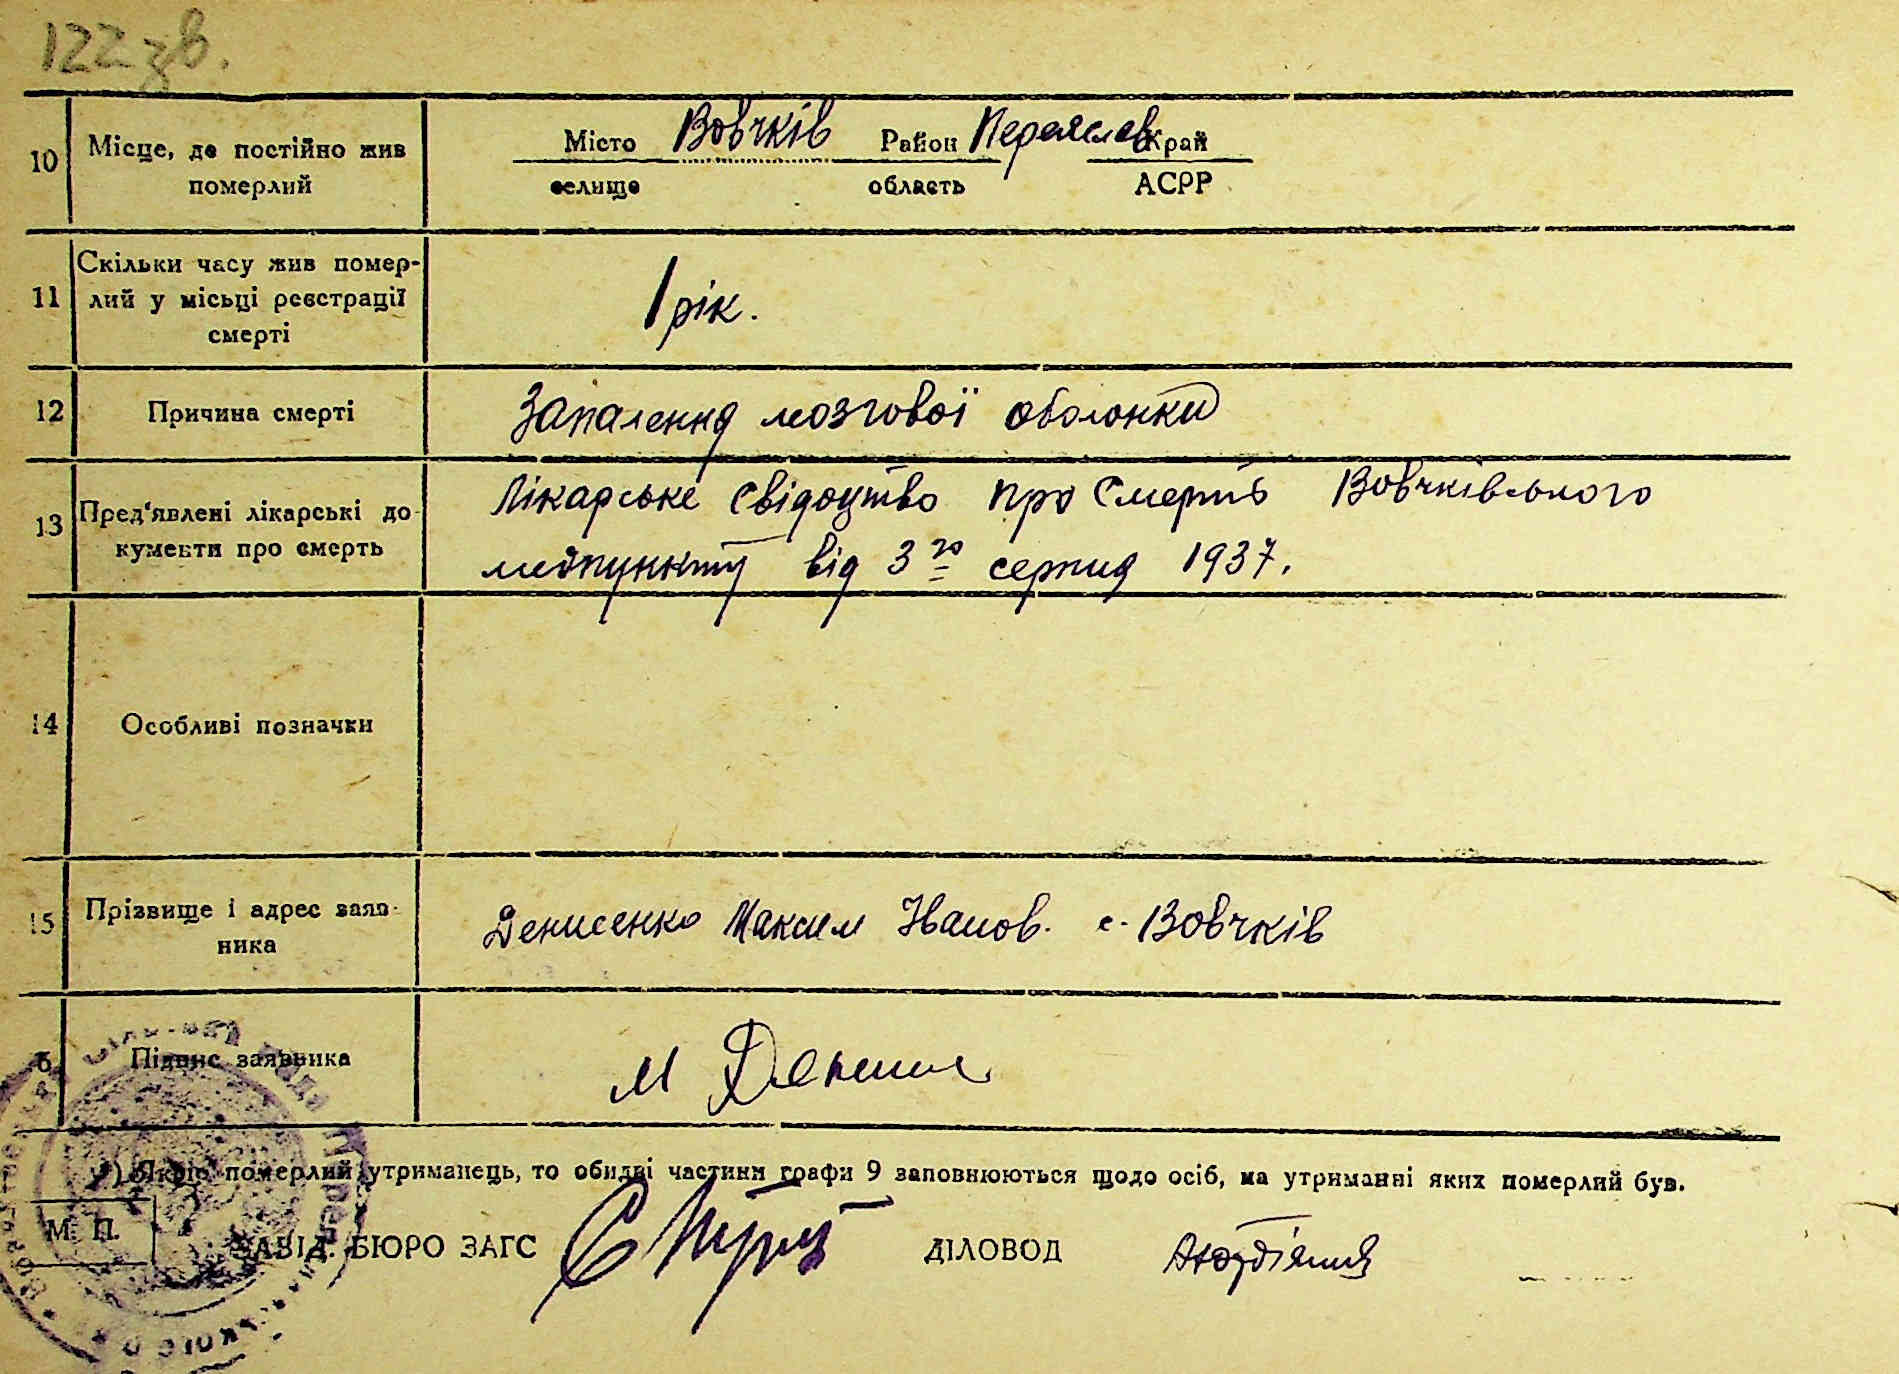 122 зв.
10 Місце, де постійно жив померлий
Місто Вовчків Район Переяслав Край
селище область АСРР
11 Скільки часу жив помер-
лий у місьці реєстрації
смерті
1 рік.
12 Причина смерті Запалення мозгової оболонки
13 Пред'явлені лікарські до-
кументи про смерть
Лікарське свідоцтво про смерть Вовчківського
медпункту від 3го серпня 1937.
14 Особливі позначки
15 Прізвище і адрес заяв-
ника
Денисенко Максим Іванов. с. Вовчків
6 Підпис заявника М Денисе
*) Якщо померлий утриманець, то обидві частини графи 9 заповнюються щодо осіб, на утриманні яких померлий був.
М. П. ЗАВІД. БЮРО ЗАГС ДІЛОВОД